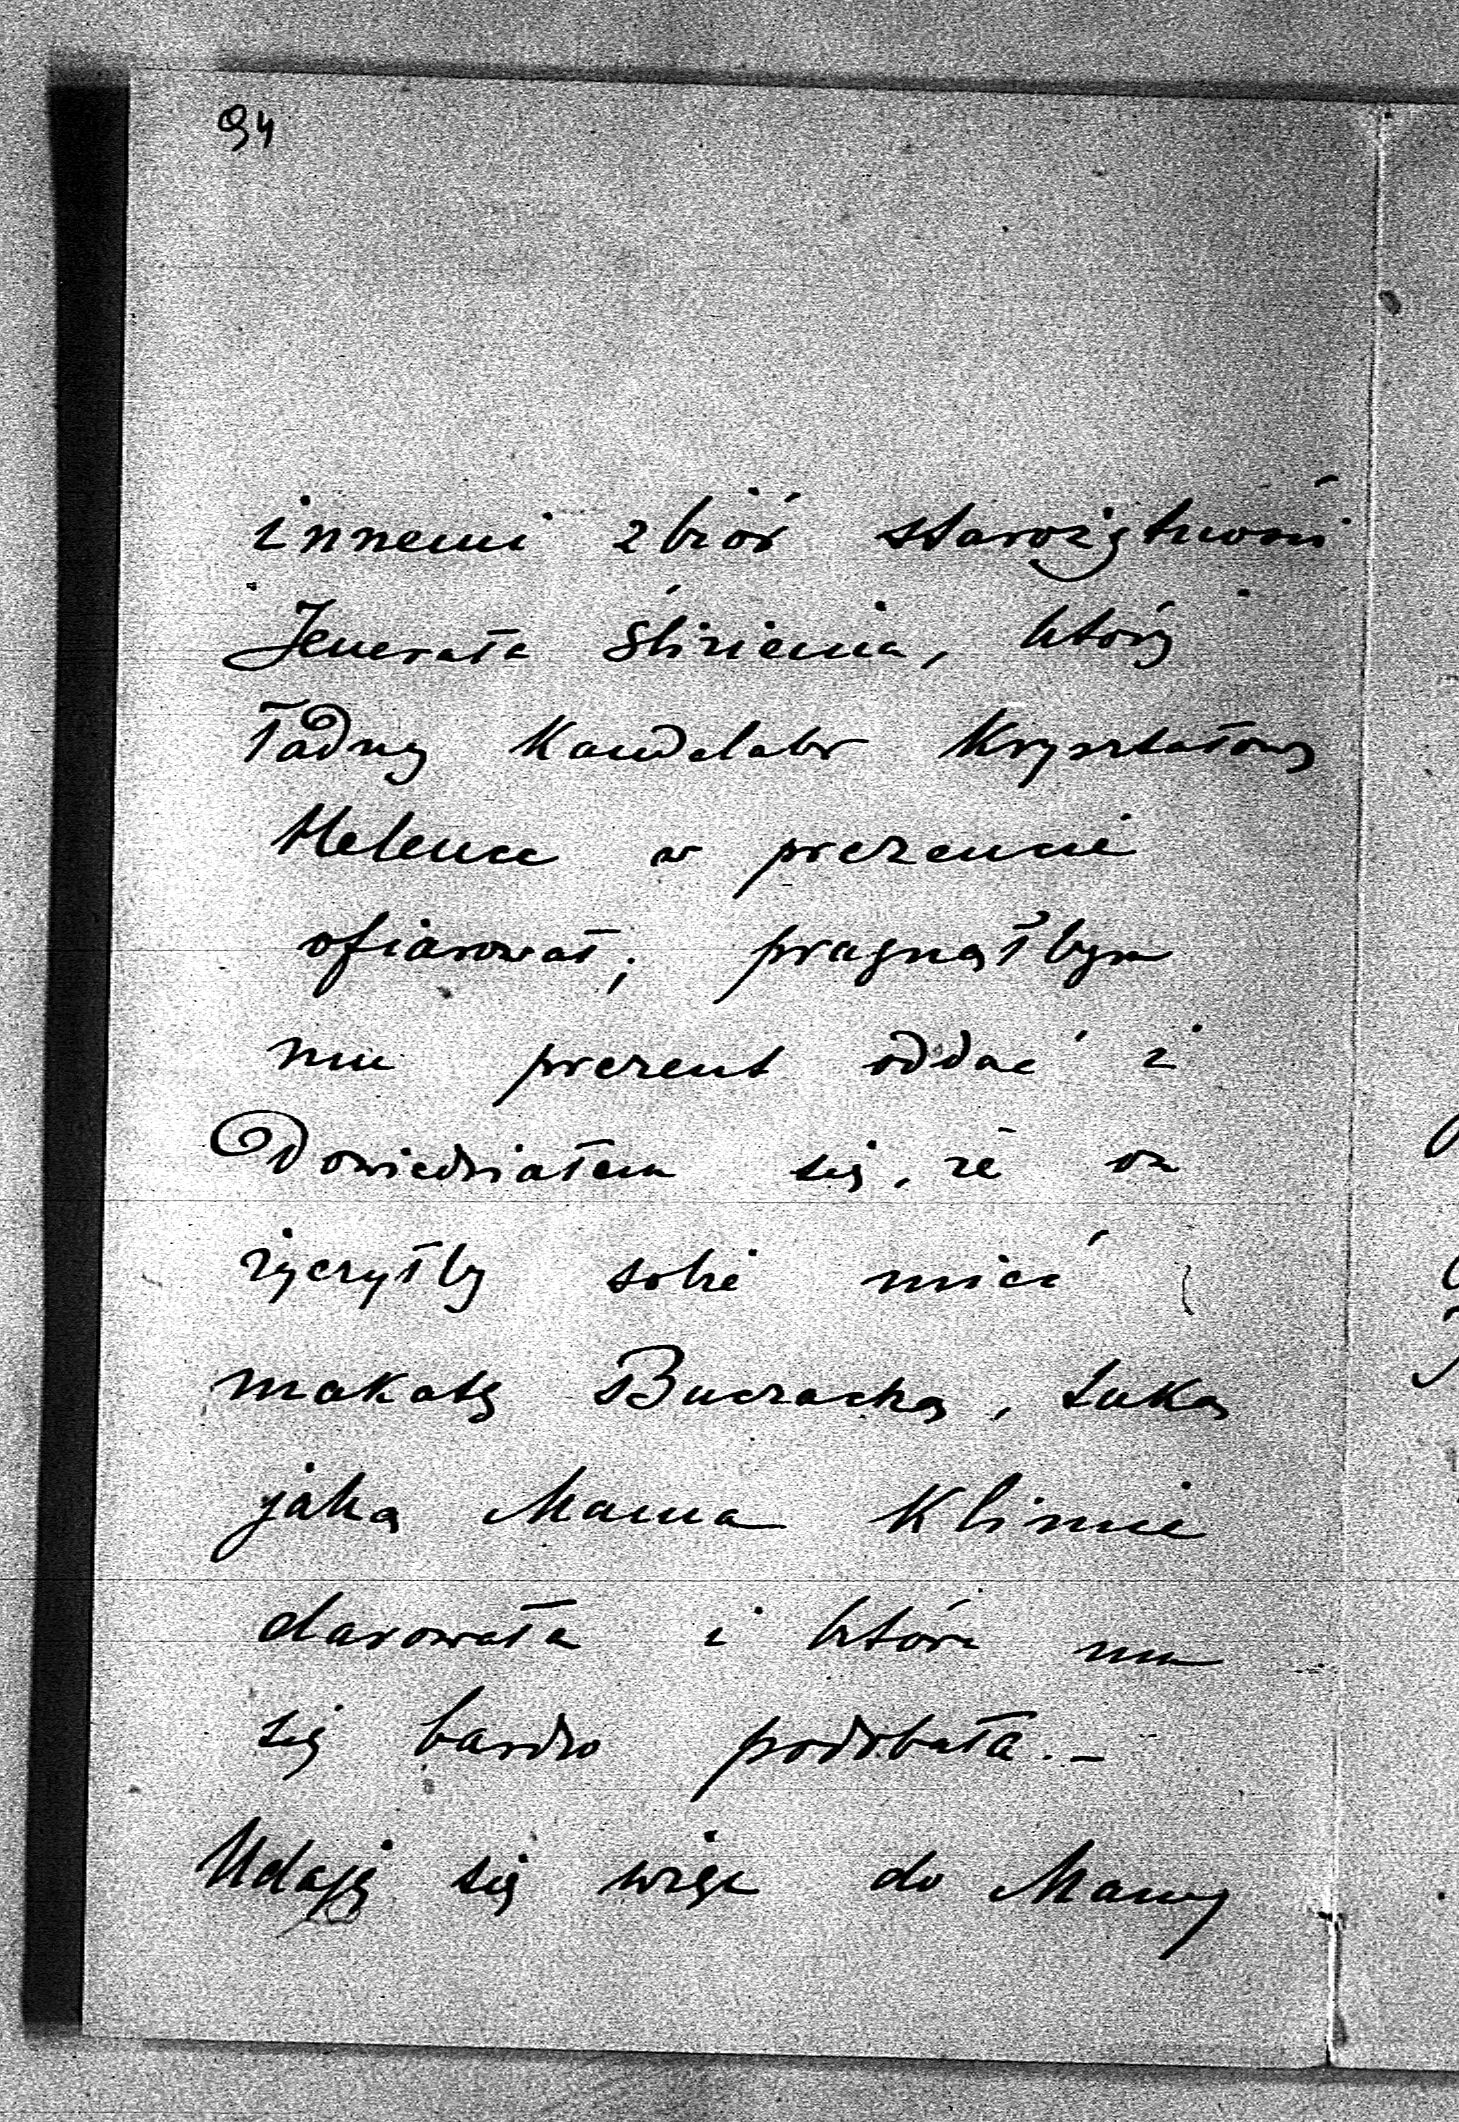 94
innemi zbiór starożytności
Jenerała Śliźienia, który
ładny Kandelabr Kryształowy
Helence w prezencie
ofiarował; pragnąłbym
mu prezent oddać i
Dowiedziałem się, że on
życzyłby sobie mieć
makatę Buczacką, taką
jaką Mama Klimie
darowała i która mu
się bardzo podobała. –
Udaję się więc do Mamy